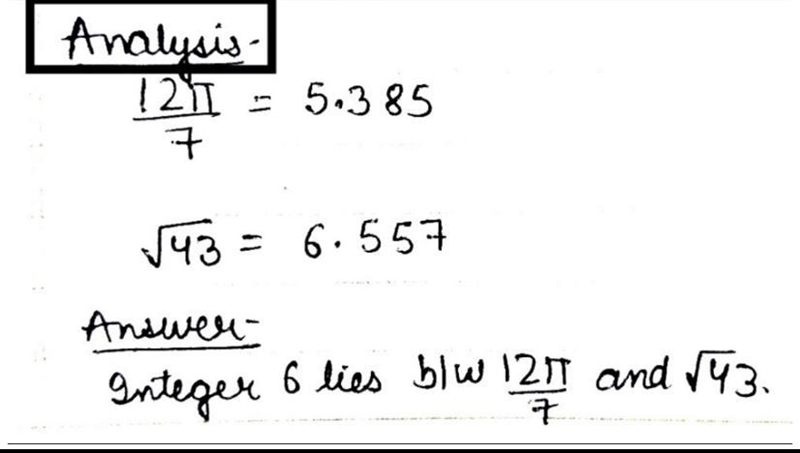 Analysis-
12π/7 = 5.385
√43 = 6.557
Answer-
Integer 6 lies b/w 12π/7 and √43.